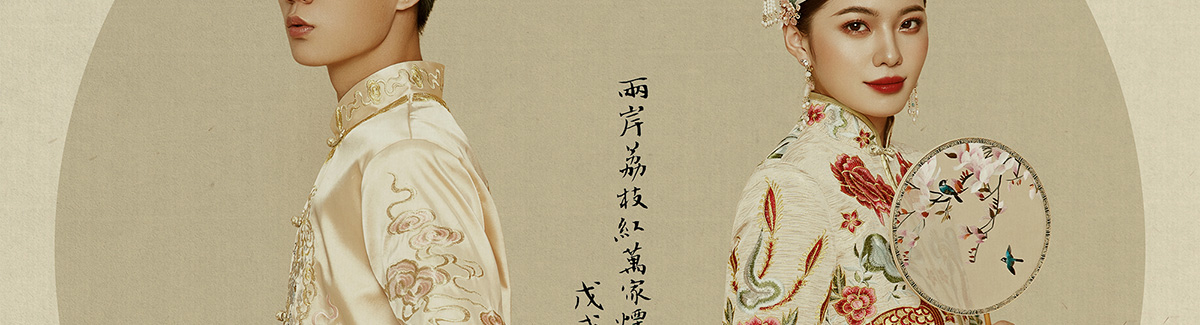 兩岸荔枝紅萬家煙
戊戌